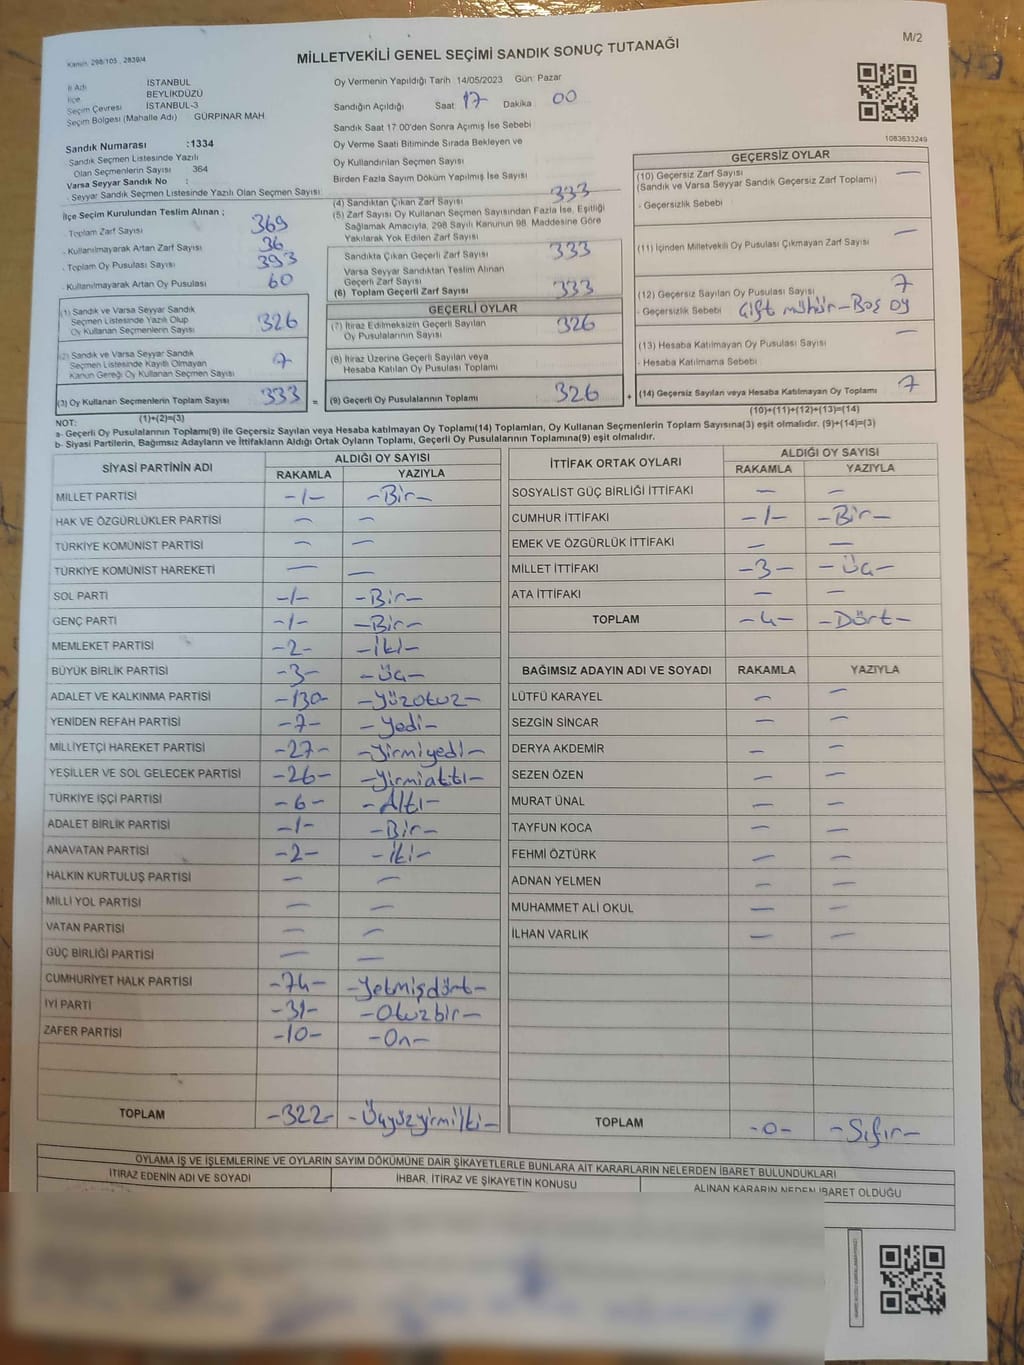 Kanun: 298/105, 2839/4
MİLLETVEKİLİ GENEL SEÇİMİ SANDIK SONUÇ TUTANAĞI
M/2
İl Adı İSTANBUL
İlçe BEYLİKDÜZÜ
Seçim Çevresi İSTANBUL-3
Seçim Bölgesi (Mahalle Adı) GÜRPINAR MAH
Sandık Numarası :1334
- Sandık Seçmen Listesinde Yazılı
Olan Seçmenlerin Sayısı 364
Varsa Seyyar Sandık No :
- Seyyar Sandık Seçmen Listesinde Yazılı Olan Seçmen Sayısı
İlçe Seçim Kurulundan Teslim Alınan ;
- Toplam Zarf Sayısı 369
- Kullanılmayarak Artan Zarf Sayısı 36
- Toplam Oy Pusulası Sayısı 393
- Kullanılmayarak Artan Oy Pusulası 60
(1) Sandık ve Varsa Seyyar Sandık
Seçmen Listesinde Yazılı Olup
Oy Kullanan Seçmenlerin Sayısı 326
(2) Sandık ve Varsa Seyyar Sandık
Seçmen Listesinde Kayıtlı Olmayan
Kanun Gereği Oy Kullanan Seçmen Sayısı 7
(3) Oy Kullanan Seçmenlerin Toplam Sayısı 333 =
(1)+(2)=(3)
Oy Vermenin Yapıldığı Tarih 14/05/2023 Gün: Pazar
Sandığın Açıldığı Saat 17 Dakika 00
Sandık Saat 17:00'den Sonra Açımış İse Sebebi
Oy Verme Saati Bitiminde Sırada Bekleyen ve
Oy Kullandırılan Seçmen Sayısı
Birden Fazla Sayım Döküm Yapılmış İse Sayısı
(4) Sandıktan Çıkan Zarf Sayısı 333
(5) Zarf Sayısı Oy Kullanan Seçmen Sayısından Fazla İse, Eşitliği
Sağlamak Amacıyla, 298 Sayılı Kanunun 98. Maddesine Göre
Yakılarak Yok Edilen Zarf Sayısı
Sandıkta Çıkan Geçerli Zarf Sayısı 333
Varsa Seyyar Sandıktan Teslim Alınan
Geçerli Zarf Sayısı
(6) Toplam Geçerli Zarf Sayısı 333
GEÇERLİ OYLAR
(7) İtiraz Edilmeksizin Geçerli Sayılan
Oy Pusulalarının Sayısı 326
(8) İtiraz Üzerine Geçerli Sayılan veya
Hesaba Katılan Oy Pusulası Toplamı
(9) Geçerli Oy Pusulalarının Toplamı 326 +
1083633249
GEÇERSİZ OYLAR
(10) Geçersiz Zarf Sayısı —
(Sandık ve Varsa Seyyar Sandık Geçersiz Zarf Toplamı)
- Geçersizlik Sebebi
(11) İçinden Milletvekili Oy Pusulası Çıkmayan Zarf Sayısı —
(12) Geçersiz Sayılan Oy Pusulası Sayısı 7
- Geçersizlik Sebebi Çift mühür-Boş oy
(13) Hesaba Katılmayan Oy Pusulası Sayısı —
- Hesaba Katılmama Sebebi
(14) Geçersiz Sayılan veya Hesaba Katılmayan Oy Toplamı 7
(10)+(11)+(12)+(13)=(14)
NOT:
a- Geçerli Oy Pusulalarının Toplamı(9) ile Geçersiz Sayılan veya Hesaba katılmayan Oy Toplamı(14) Toplamları, Oy Kullanan Seçmenlerin Toplam Sayısına(3) eşit olmalıdır. (9)+(14)=(3)
b- Siyasi Partilerin, Bağımsız Adayların ve İttifakların Aldığı Ortak Oyların Toplamı, Geçerli Oy Pusulalarının Toplamına(9) eşit olmalıdır.
SİYASİ PARTİNİN ADI ALDIĞI OY SAYISI
RAKAMLA YAZIYLA
MİLLET PARTİSİ -1- -Bir-
HAK VE ÖZGÜRLÜKLER PARTİSİ — —
TÜRKİYE KOMÜNİST PARTİSİ — —
TÜRKİYE KOMÜNİST HAREKETİ — —
SOL PARTİ -1- -Bir-
GENÇ PARTİ -1- -Bir-
MEMLEKET PARTİSİ -2- -İki-
BÜYÜK BİRLİK PARTİSİ -3- -Üç-
ADALET VE KALKINMA PARTİSİ -130- -Yüzotuz-
YENİDEN REFAH PARTİSİ -7- -Yedi-
MİLLİYETÇİ HAREKET PARTİSİ -27- -Yirmiyedi-
YEŞİLLER VE SOL GELECEK PARTİSİ -26- -Yirmialtı-
TÜRKİYE İŞÇİ PARTİSİ -6- -Altı-
ADALET BİRLİK PARTİSİ -1- -Bir-
ANAVATAN PARTİSİ -2- -İki-
HALKIN KURTULUŞ PARTİSİ — —
MİLLİ YOL PARTİSİ — —
VATAN PARTİSİ — —
GÜÇ BİRLİĞİ PARTİSİ — —
CUMHURİYET HALK PARTİSİ -74- -Yetmişdört-
İYİ PARTİ -31- -Otuzbir-
ZAFER PARTİSİ -10- -On-
TOPLAM -322- -Üçyüzyirmiiki-
İTTİFAK ORTAK OYLARI ALDIĞI OY SAYISI
RAKAMLA YAZIYLA
SOSYALİST GÜÇ BİRLİĞİ İTTİFAKI — —
CUMHUR İTTİFAKI -1- -Bir-
EMEK VE ÖZGÜRLÜK İTTİFAKI — —
MİLLET İTTİFAKI -3- -Üç-
ATA İTTİFAKI — —
TOPLAM -4- -Dört-
BAĞIMSIZ ADAYIN ADI VE SOYADI RAKAMLA YAZIYLA
LÜTFÜ KARAYEL — —
SEZGİN SİNCAR — —
DERYA AKDEMİR — —
SEZEN ÖZEN — —
MURAT ÜNAL — —
TAYFUN KOCA — —
FEHMİ ÖZTÜRK — —
ADNAN YELMEN — —
MUHAMMET ALİ OKUL — —
İLHAN VARLIK — —
TOPLAM -0- -Sıfır-
OYLAMA İŞ VE İŞLEMLERİNE VE OYLARIN SAYIM DÖKÜMÜNE DAİR ŞİKAYETLERLE BUNLARA AİT KARARLARIN NELERDEN İBARET BULUNDUKLARI
İTİRAZ EDENİN ADI VE SOYADI İHBAR, İTİRAZ VE ŞİKAYETİN KONUSU ALINAN KARARIN NEDEN İBARET OLDUĞU